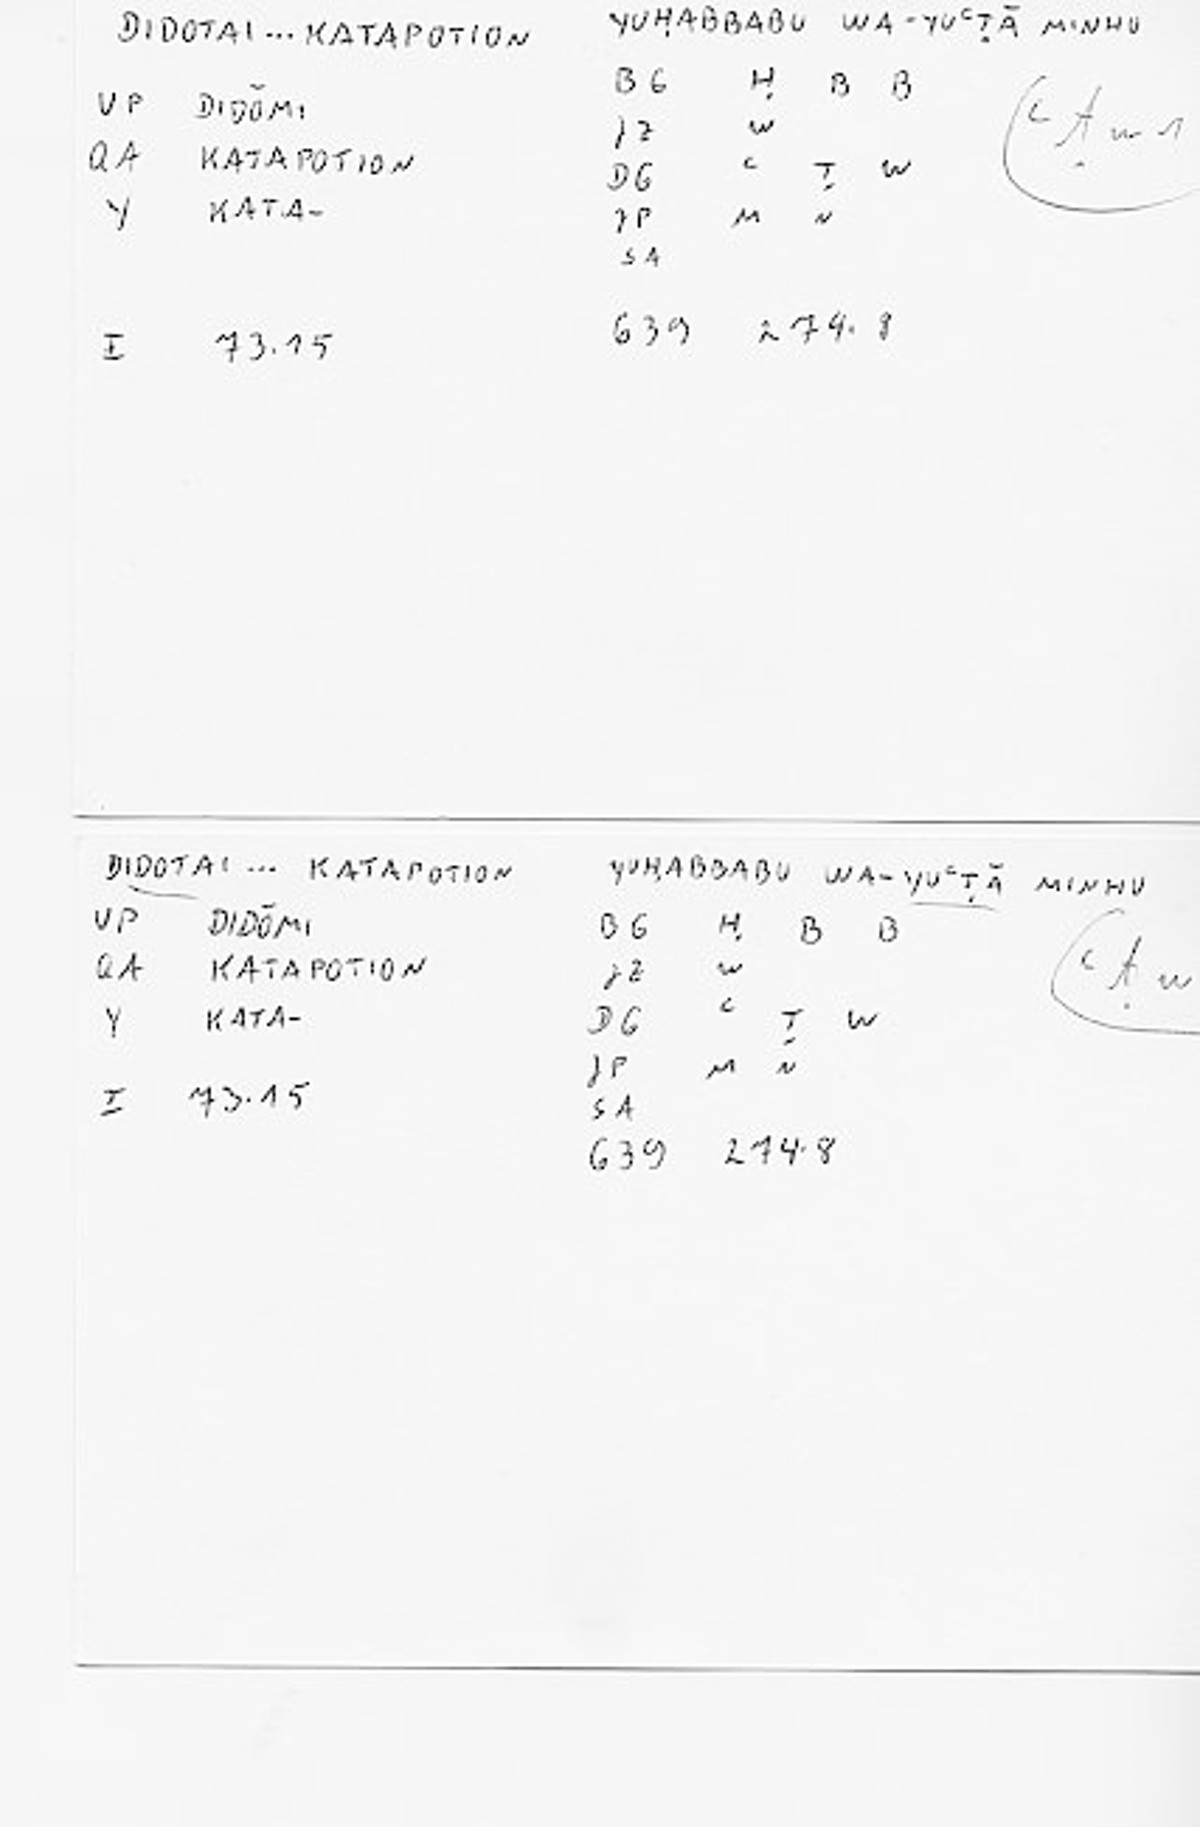 DIDOTAI ... KATAPOTION YUḤABBABU WA-YUᶜṬĀ MINHU
VP DIDŌMI BG Ḥ B B
QA KATAPOTION JZ W
Y KATA- DG ᶜ Ṭ W
JP M N
SA
I 73.15 639 274.8
ᶜṬW1
DIDOTAI ... KATAPOTION YUḤABBABU WA-YUᶜṬĀ MINHU
VP DIDŌMI BG Ḥ B B
QA KATAPOTION JZ W
Y KATA- DG ᶜ Ṭ W
JP M N
I 73.15 SA
639 274.8
ᶜṬW